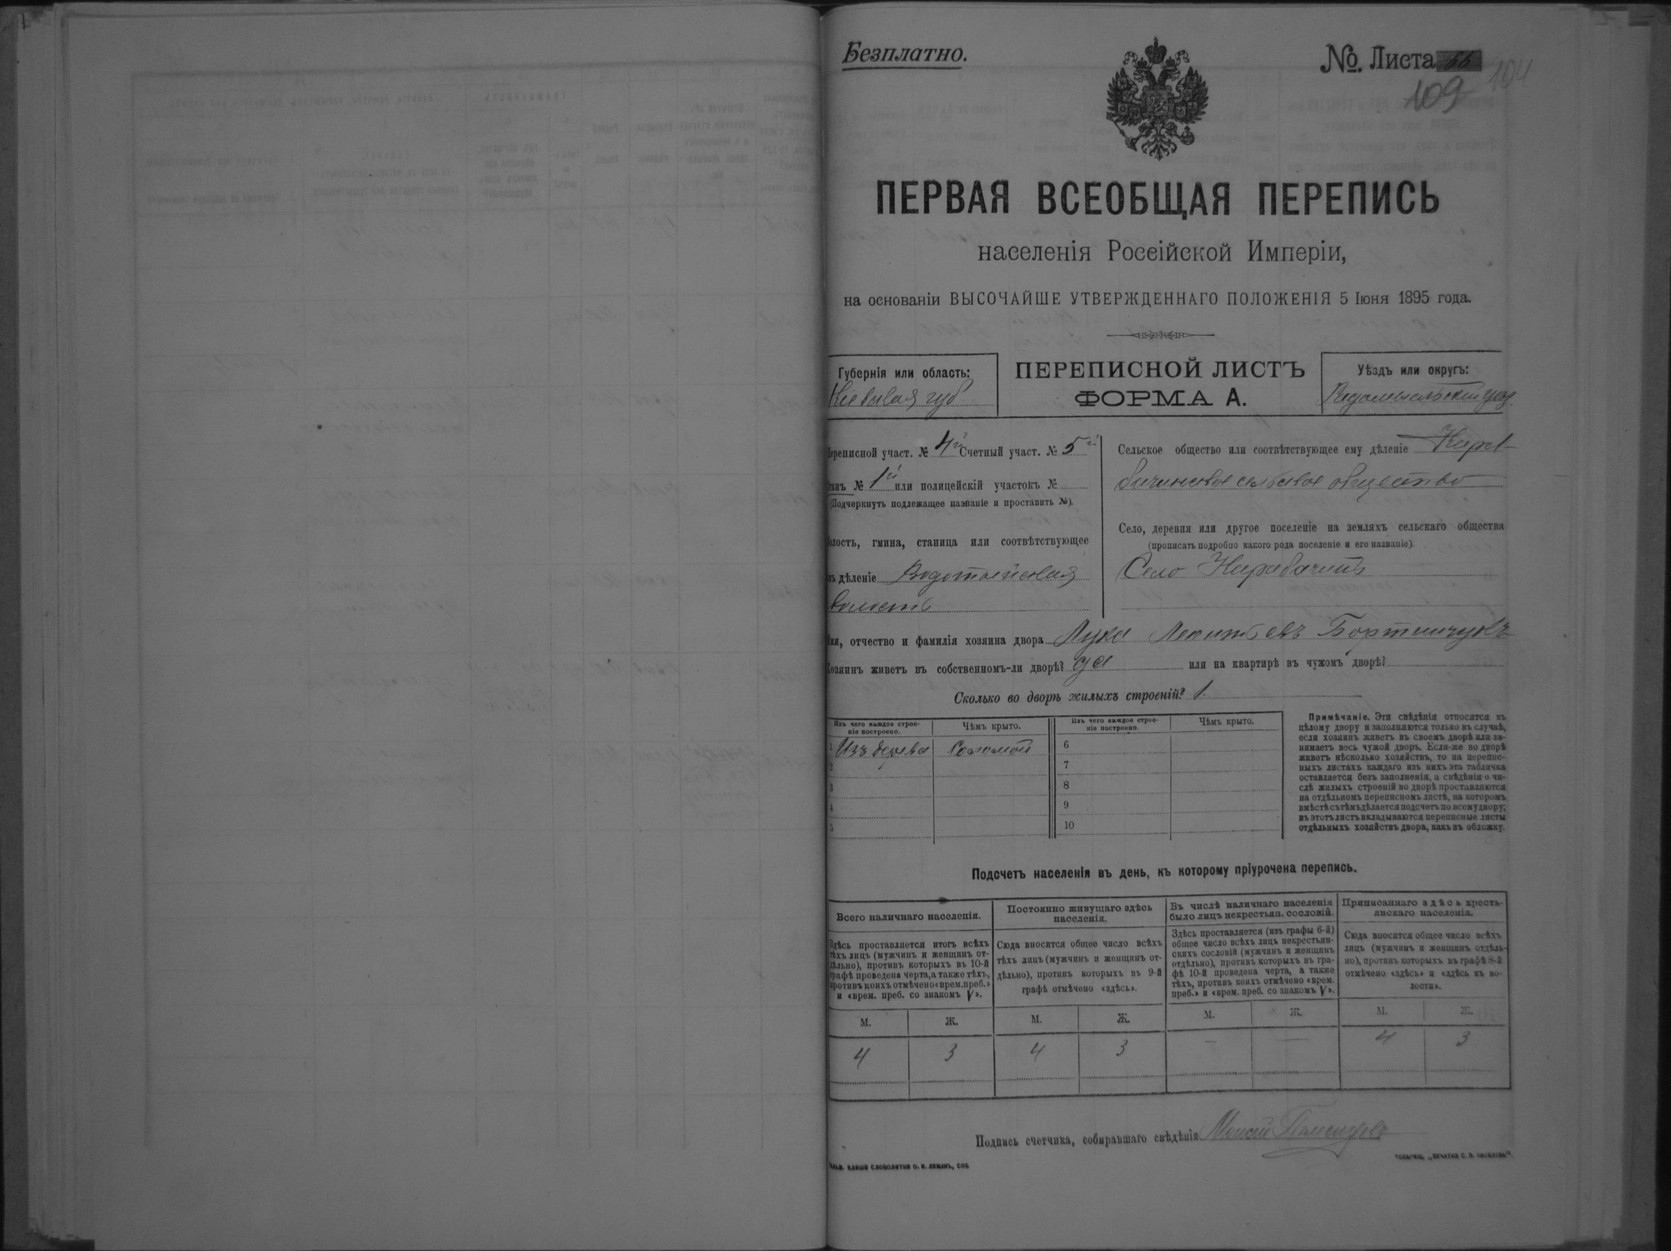 Безплатно.
№ Листа
109 104
ПЕРВАЯ ВСЕОБЩАЯ ПЕРЕПИСЬ
населенія Россійской Имперіи,
на основаніи ВЫСОЧАЙШЕ УТВЕРЖДЕННАГО ПОЛОЖЕНІЯ 5 Іюня 1895 года.
Губернія или область:
Кіевская губ
ПЕРЕПИСНОЙ ЛИСТЪ
ФОРМА А.
Уѣздъ или округъ:
Радомысльскій уѣз.
Переписной участ. № 4й Счетный участ. № 5й
Станъ № 1й или полицейскій участокъ №
(Подчеркнуть подлежащее названіе и проставить №).
Волость, гмина, станица или соотвѣтствующее
имъ дѣленіе Водотыйская
волость
Сельское общество или соотвѣтствующее ему дѣленіе Кара-
бачинское сельское общество
Село, деревня или другое поселеніе на земляхъ сельскаго общества
(прописать подробно какого рода поселеніе и его названіе).
Село Карабачинъ
Имя, отчество и фамилія хозяина двора Лука Леонтьевъ Бортничукъ
Хозяинъ живетъ въ собственномъ-ли дворѣ? да или на квартирѣ въ чужомъ дворѣ?
Сколько во дворѣ жилыхъ строеній? 1.
Изъ чего каждое строе-
ніе построено.
Чѣмъ крыто.
Изъ чего каждое строе-
ніе построено.
Чѣмъ крыто.
1 Изъ дерева Соломой 6
2 7
3 8
4 9
5 10
Примѣчаніе. Эти свѣдѣнія относятся къ
цѣлому двору и заполняются только въ случаѣ,
если хозяинъ живетъ въ своемъ дворѣ или за-
нимаетъ весь чужой дворъ. Если-же во дворѣ
живетъ нѣсколько хозяйствъ, то на перепис-
ныхъ листахъ каждаго изъ нихъ эта табличка
оставляется безъ заполненія, а свѣдѣнія о чи-
слѣ жилыхъ строеній во дворѣ проставляются
на отдѣльномъ переписномъ листѣ, на которомъ
вмѣстѣ съ тѣмъ дѣлается подсчетъ по всему двору;
въ этотъ листъ вкладываются переписные листы
отдѣльныхъ хозяйствъ двора, какъ въ обложку.
Подсчетъ населенія въ день, къ которому пріурочена перепись.
Всего наличнаго населенія.
Здѣсь проставляется итогъ всѣхъ
тѣхъ лицъ (мужчинъ и женщинъ от-
дѣльно), противъ которыхъ въ 10-й
графѣ проведена черта, а также тѣхъ,
противъ коихъ отмѣчено «врем. преб.»
и «врем. преб. со знакомъ V».
Постоянно живущаго здѣсь
населенія.
Сюда вносится общее число всѣхъ
тѣхъ лицъ (мужчинъ и женщинъ от-
дѣльно), противъ которыхъ въ 9-й
графѣ отмѣчено «здѣсь».
Въ числѣ наличнаго населенія
было лицъ некрестьян. сословій.
Здѣсь проставляется (изъ графы 6-й)
общее число всѣхъ лицъ некрестьян-
скихъ сословій (мужчинъ и женщинъ
отдѣльно), противъ которыхъ въ гра-
фѣ 10-й проведена черта, а также
тѣхъ, противъ коихъ отмѣчено «врем.
преб.» и «врем. преб. со знакомъ V».
Приписаннаго здѣсь кресть-
янскаго населенія.
Сюда вносится общее число всѣхъ
лицъ (мужчинъ и женщинъ отдѣль-
но), противъ которыхъ въ графѣ 8-й
отмѣчено «здѣсь» и «здѣсь въ во-
лости».
М. Ж. М. Ж. М. Ж. М. Ж.
4 3 4 3 — — 4 3
Подпись счетчика, собиравшаго свѣдѣнія Моисей